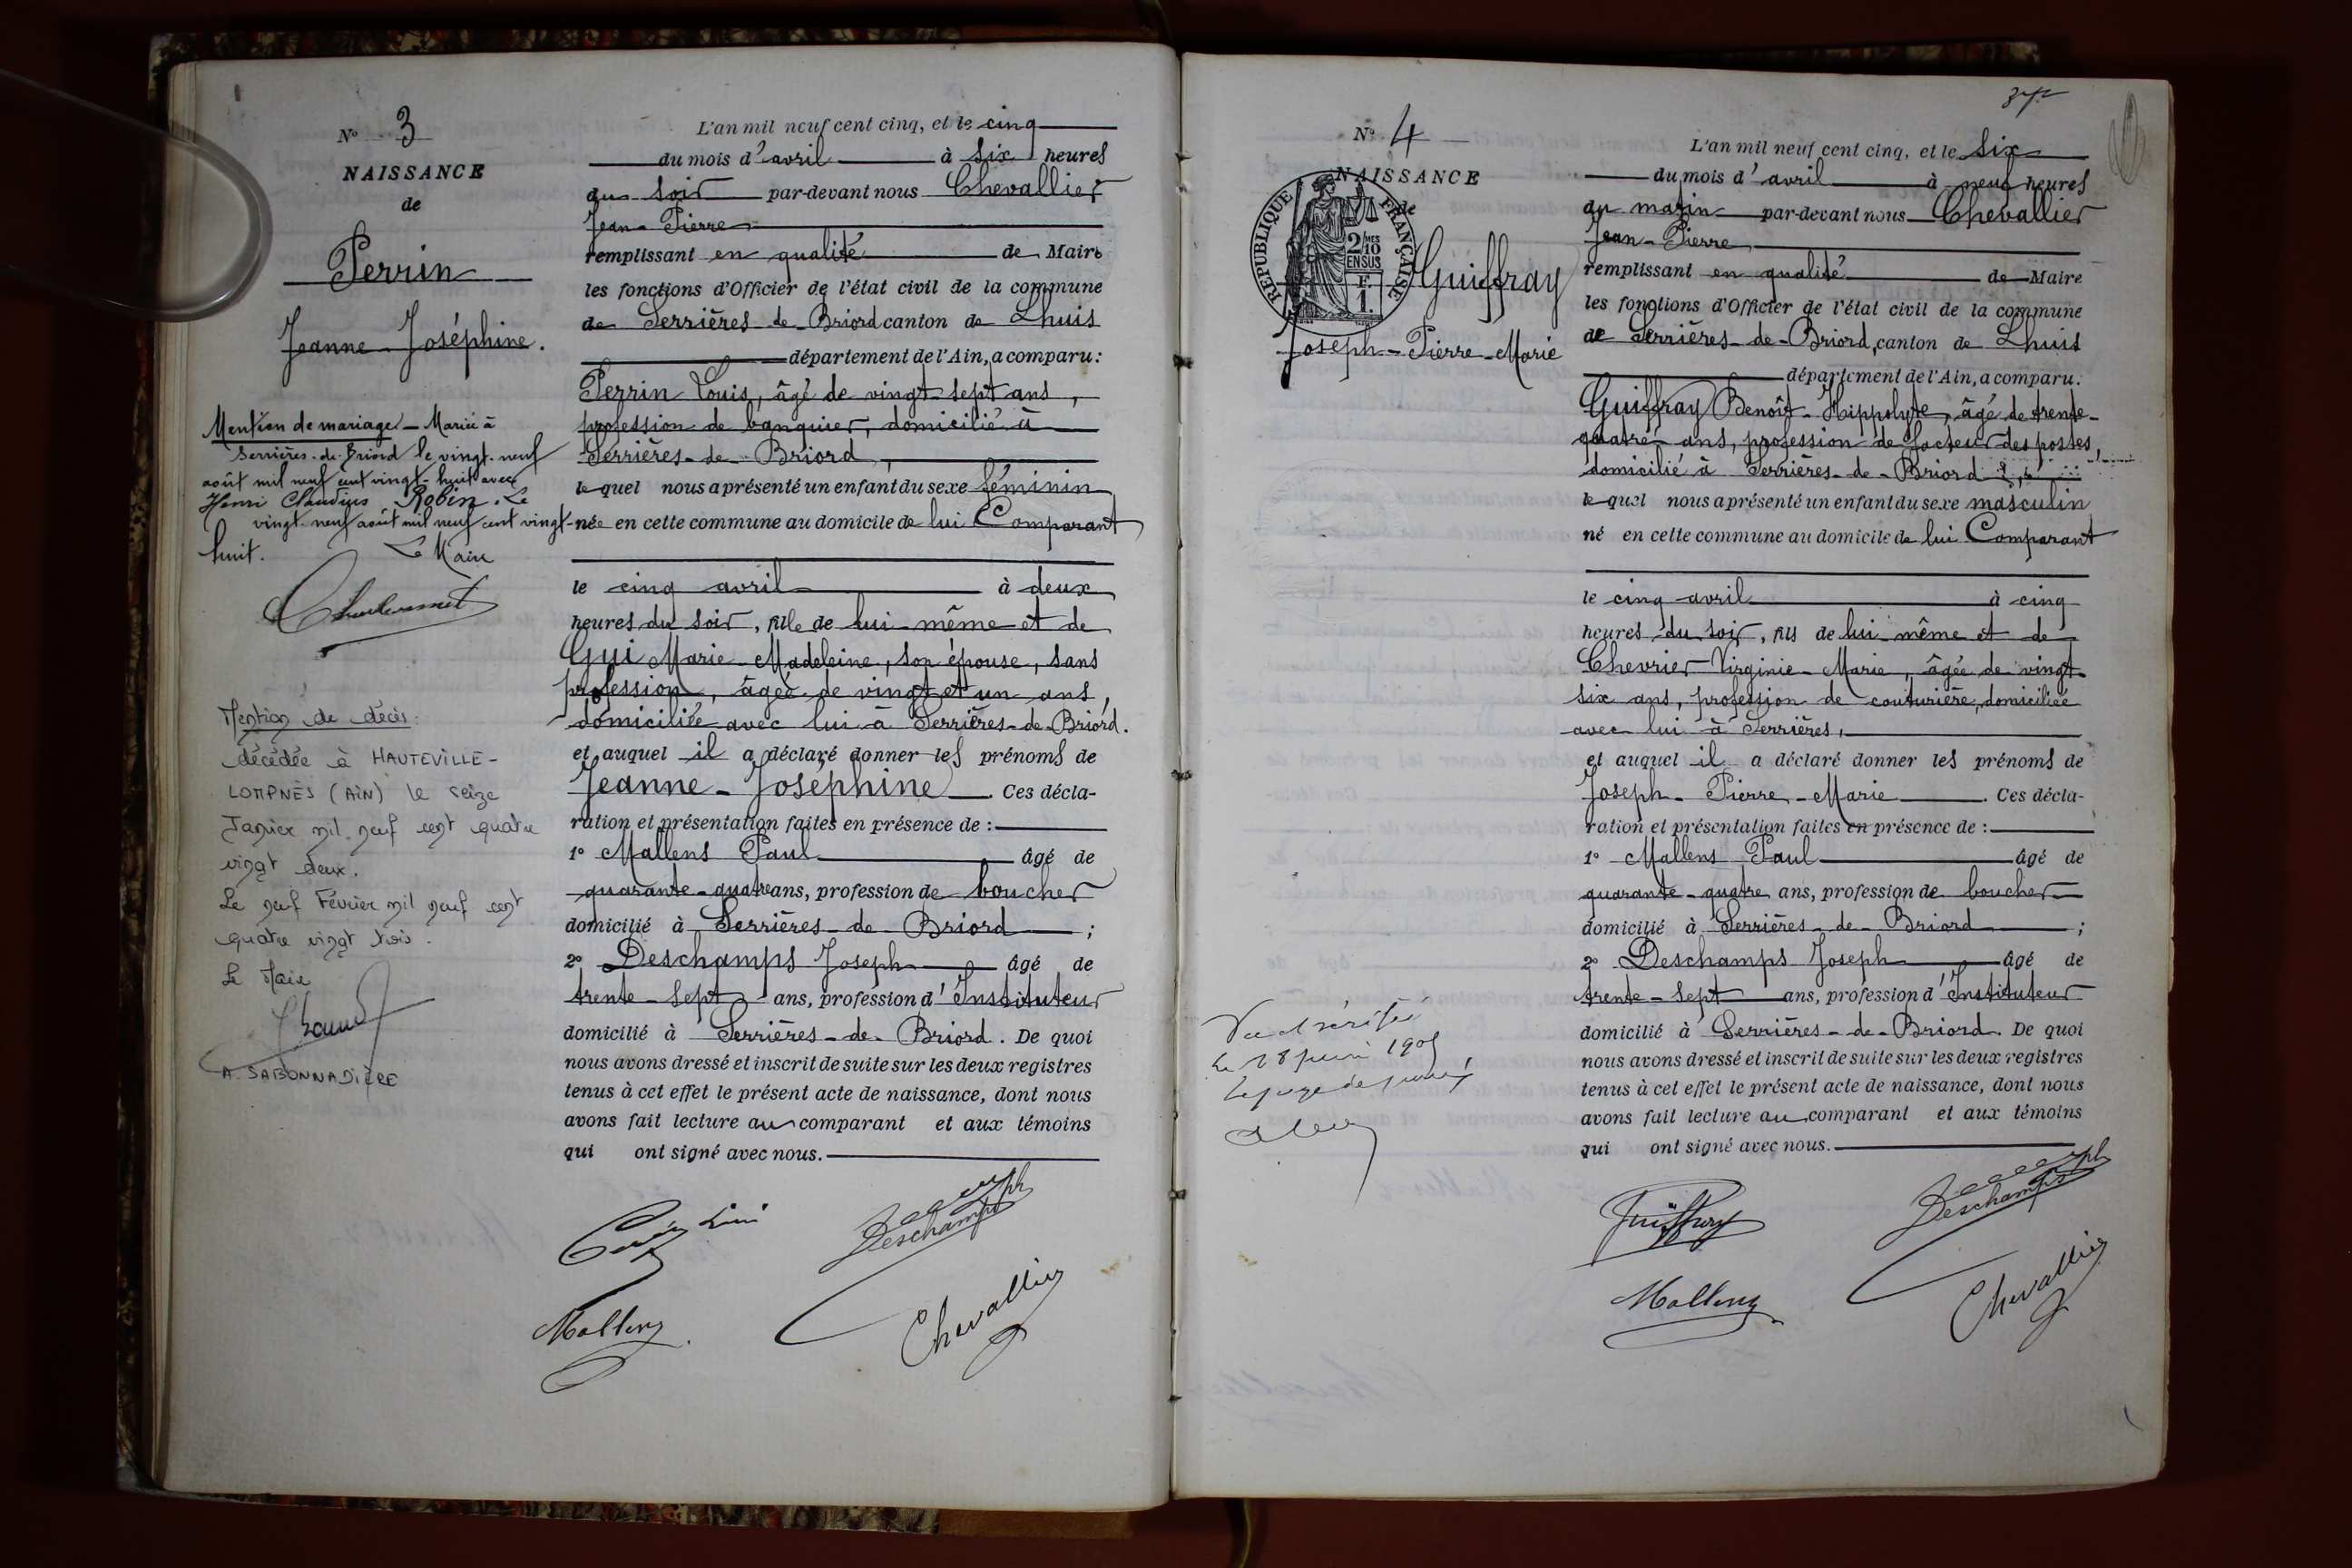 N° 3
NAISSANCE
de
Perrin
Jeanne-Joséphine.
Mention de mariage – Mariée à
Serrières-de-Briord le vingt-neuf
août mil neuf cent vingt-huit avec
Henri Claudius Robin. Le
vingt-neuf août mil neuf cent vingt-
huit.
Le Maire
Mention de décès:
décédée à HAUTEVILLE-
LOMPNES (AIN) le seize
Janvier mil neuf cent quatre
vingt deux.
Le neuf Février mil neuf cent
quatre vingt trois.
Le Maire
A. SABONNADIÈRE
L'an mil neuf cent cinq, et le cinq
du mois d'avril à six heures
du soir par-devant nous Chevallier
Jean-Pierre
remplissant en qualité de Maire
les fonctions d'Officier de l'état civil de la commune
de Serrières-de-Briord canton de Lhuis
département de l'Ain, a comparu:
Perrin Louis, âgé de vingt-sept ans,
profession de banquier, domicilié à
Serrières-de-Briord,
lequel nous a présenté un enfant du sexe féminin
née en cette commune au domicile de lui Comparant
le cinq avril à deux
heures du soir, fille de lui-même et de
Gui Marie-Madeleine, son épouse, sans
profession, âgée de vingt et un ans,
domiciliée avec lui à Serrières-de-Briord.
et auquel il a déclaré donner les prénoms de
Jeanne-Joséphine. Ces décla-
ration et présentation faites en présence de :
1° Mallens Paul âgé de
quarante-quatre ans, profession de boucher
domicilié à Serrières-de-Briord ;
2° Deschamps Joseph âgé de
trente-sept ans, profession d'Instituteur
domicilié à Serrières-de-Briord. De quoi
nous avons dressé et inscrit de suite sur les deux registres
tenus à cet effet le présent acte de naissance, dont nous
avons fait lecture au comparant et aux témoins
qui ont signé avec nous.
Deschamps
Mallens
Chevallier
N° 4
NAISSANCE
de
RÉPUBLIQUE FRANÇAISE
2/10MES
EN SUS
F.
1.
Guiffray
Joseph-Pierre-Marie
Vu et vérifié
le 28 juin 1905
Le juge de paix,
L'an mil neuf cent cinq, et le six
du mois d'avril à neuf heures
du matin par-devant nous Chevallier
Jean-Pierre,
remplissant en qualité de Maire
les fonctions d'Officier de l'état civil de la commune
de Serrières-de-Briord, canton de Lhuis
département de l'Ain, a comparu:
Guiffray Benoît-Hippolyte, âgé de trente-
quatre ans, profession de facteur des postes,
domicilié à Serrières-de-Briord
lequel nous a présenté un enfant du sexe masculin
né en cette commune au domicile de lui Comparant
le cinq avril à cinq
heures du soir, fils de lui-même et de
Chevrier Virginie-Marie, âgée de vingt-
six ans, profession de couturière, domiciliée
avec lui à Serrières,
et auquel il a déclaré donner les prénoms de
Joseph-Pierre-Marie. Ces décla-
ration et présentation faites en présence de :
1° Mallens Paul âgé de
quarante-quatre ans, profession de boucher
domicilié à Serrières-de-Briord ;
2° Deschamps Joseph âgé de
trente-sept ans, profession d'Instituteur
domicilié à Serrières-de-Briord. De quoi
nous avons dressé et inscrit de suite sur les deux registres
tenus à cet effet le présent acte de naissance, dont nous
avons fait lecture au comparant et aux témoins
qui ont signé avec nous.
Guiffray
Deschamps
Mallens
Chevallier